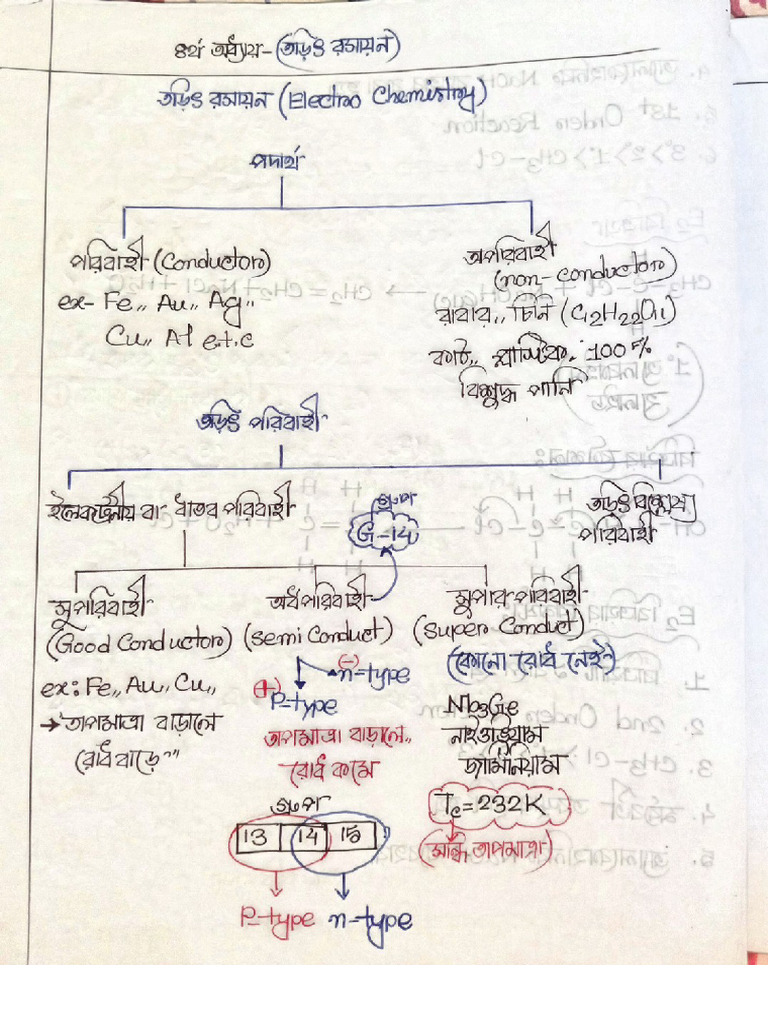 ৪র্থ অধ্যায়-(তড়িৎ রসায়ন)
তড়িৎ রসায়ন (Electro Chemistry)
পদার্থ
পরিবাহী (Conductor)
ex- Fe,, Au,, Ag,,
Cu,, Al e.t.c
অপরিবাহী
(non-conductor)
রাবার,, চিনি (C12H22O11)
কাঠ,, প্লাস্টিক, 100%
বিশুদ্ধ পানি
তড়িৎ পরিবাহী
ইলেকট্রনীয় বা ধাতব পরিবাহী
গ্রুপ
G-14
তড়িৎ বিশ্লেষ্য
পরিবাহী
সুপরিবাহী
(Good Conductor)
ex: Fe,, Au,, Cu,,
→ তাপমাত্রা বাড়ালে
রোধ বাড়ে""
অর্ধপরিবাহী
(Semi Conduct)
(-) n-type
(+) P-type
তাপমাত্রা বাড়ালে,,
রোধ কমে
গ্রুপ
13 14 15
P-type n-type
সুপার পরিবাহী
(Super Conduct)
(কোনো রোধ নেই)
Nb3Ge
নাইওবিয়াম
জার্মেনিয়াম
Tc=232K
(সন্ধি তাপমাত্রা)